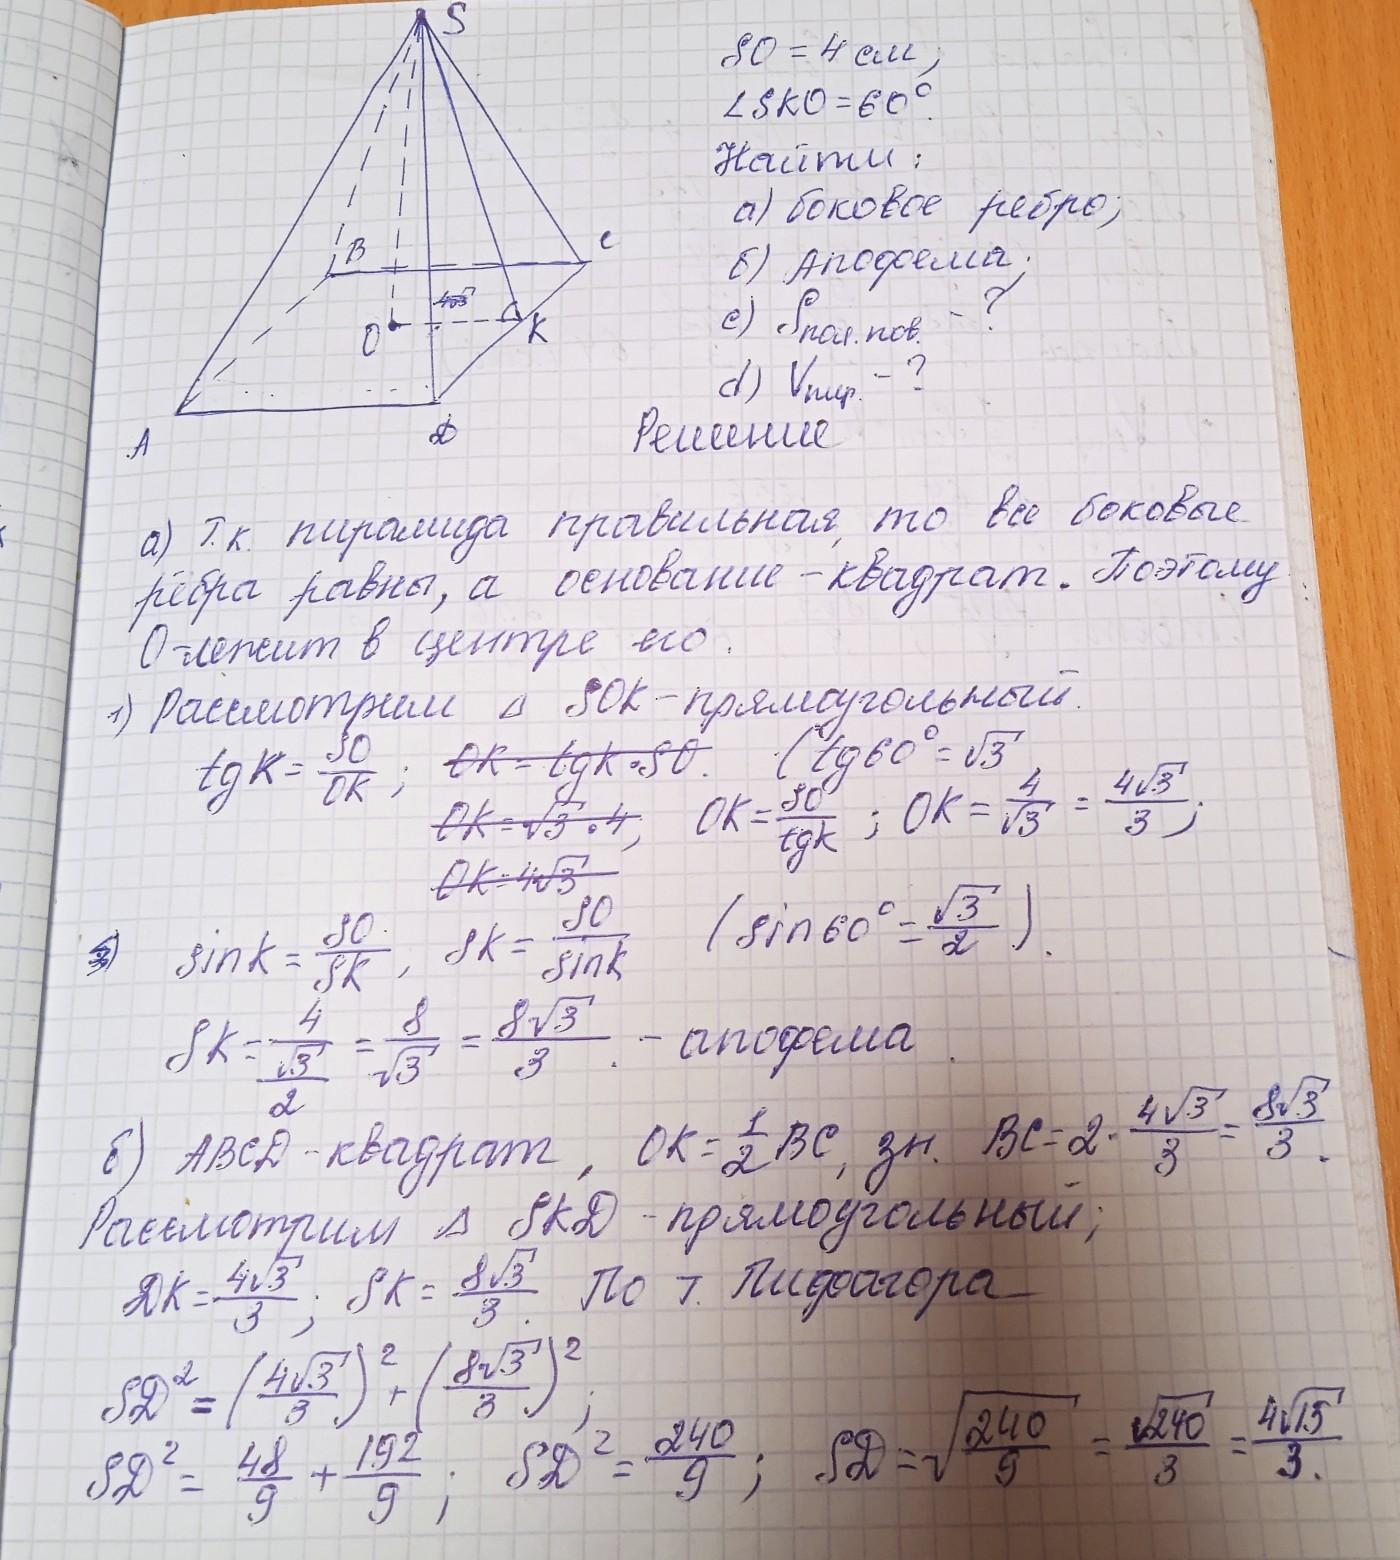 S
SO = 4 см;
∠SKO = 60°.
Найти:
а) боковое ребро;
б) Апофема;
c) Sпол. пов. - ?
d) Vпир. - ?
B
C
4√3
O
K
A
D
Решение
а) Т.к. пирамида правильная, то все боковые
рёбра равны, а основание - квадрат. Поэтому
О-лежит в центре его.
1) Рассмотрим △ SOK - прямоугольный.
tgK = SO/OK; OK = tgK · SO. (tg60° = √3
OK = √3 · 4; OK = SO/tgK; OK = 4/√3 = 4√3/3;
OK = 4√3
sinK = SO/SK, SK = SO/sinK (sin60° = √3/2).
SK = 4/(√3/2) = 8/√3 = 8√3/3. - апофема.
б) ABCD - квадрат, OK = 1/2 BC, зн. BC = 2 · 4√3/3 = 8√3/3.
Рассмотрим △ SKD - прямоугольный;
DK = 4√3/3; SK = 8√3/3. По т. Пифагора
SD² = (4√3/3)² + (8√3/3)²;
SD² = 48/9 + 192/9; SD² = 240/9; SD = √(240/9) = √240/3 = 4√15/3.